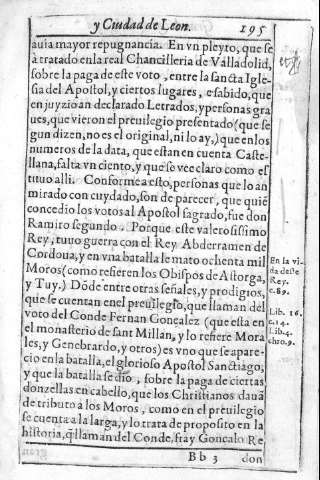 y Ciudad de Leon.
195
auia mayor repugnancia. En vn pleyto, que se
à tratado en la real Chancilleria de Valladolid,
sobre la paga de este voto, entre la sancta Igle-
sia del Apostol, y ciertos lugares, e sabido, que
en juyzio an declarado Letrados, y personas gra
ues, que vieron el preuilegio presentado (que se
gun dizen, no es el original, ni lo ay,) que en los
numeros de la data, que estan en cuenta Caste-
llana, falta vn ciento, y que se vee claro como es
tituo alli. Conforme a esto, personas que lo an
mirado con cuydado, son de parecer, que quiē
concedio los votos al Apostol sagrado, fue don
Ramiro segundo. Porque este valerosissimo
Rey, tuuo guerra con el Rey Abderramen de
Cordoua, y en vna batalla le mato ochenta mil
Moros (como refieren los Obispos de Astorga,
y Tuy.) Dōde entre otras señales, y prodigios,
que se cuentan en el preuilegio, que llaman del
voto del Conde Fernan Gonçalez (que esta en
el monasterio de sant Millan, y lo refiere Mora
les, y Genebrardo, y otros) es vno que se apare-
cio en la batalla, el glorioso Apostol Sanctiago;
y que la batalla se dio, sobre la paga de ciertas
donzellas en cabello, que los Christianos dauā
de tributo a los Moros, como en el preuilegio
se cuenta a la larga, y lo trata de proposito en la
historia, q̄ llaman del Conde, fray Gonçalo Re
Bb 3
don
En la vi-
da deste
Rey.
c.89.
Lib. 16.
c.14.
Lib.4.
chro.9.